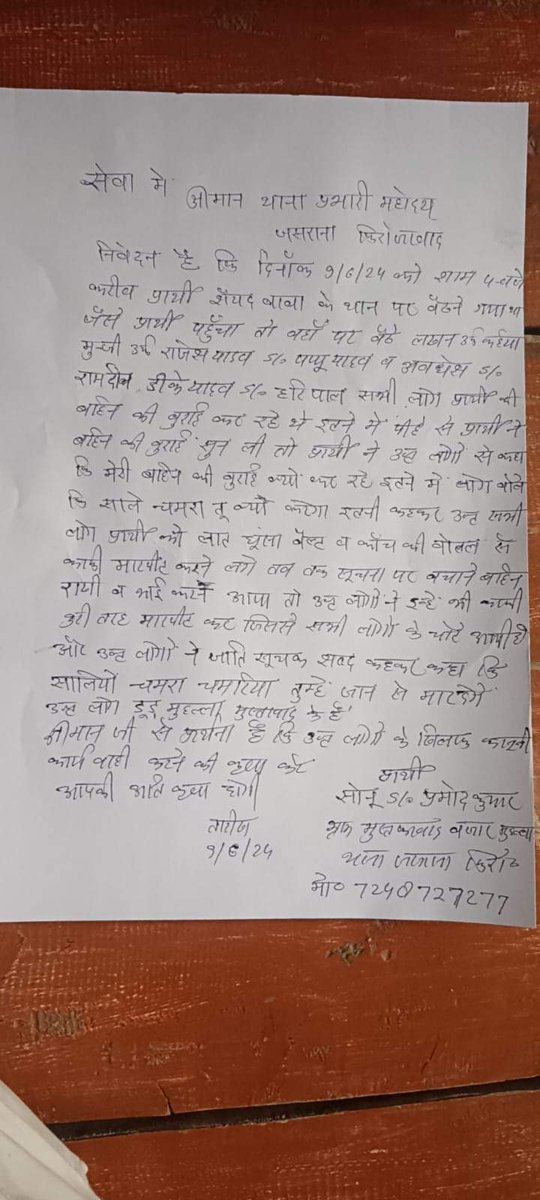 सेवा में
श्रीमान थाना प्रभारी महोदय
जसराना फिरोजाबाद
निवेदन है कि दिनाँक 9/6/24 को शाम 5 बजे
करीब प्रार्थी सैयद बाबा के थान पर बैठने गया था
जैसे प्रार्थी पहुँचा तो वहाँ पर बैठे लखन उर्फ
मुन्शी उर्फ राजेश यादव S/o पप्पू यादव व अवधेश S/o
रामदीन, डीके यादव S/o हरि पाल सभी लोग प्रार्थी की
बहिन की बुराई कर रहे थे इतने में पीछे से प्रार्थी ने
बहिन की बुराई सुन ली तो प्रार्थी ने उक्त लोगो से कहा
कि मेरी बहिन की बुराई क्यों कर रहे इतने में लोग बोले
कि साले चमरा तू क्यों करेगा इतनी कहकर उक्त सभी
लोग प्रार्थी को लात घूंसा बेल्ट व काँच की बोतल से
काफी मारपीट करने लगे तब तक सूचना पर बचाने बहिन
व भाई करन आया तो उक्त लोगो ने इन्हें भी काफी
बुरी तरह मारपीट कर जिससे सभी लोगो के चोटे आयी है
और उक्त लोगो ने जाति सूचक शब्द कहकर कहा कि
सालियो चमरा चमरिया तुम्हें जान से मार देगें
उक्त लोग मुहल्ला मुस्तफाबाद के है
श्रीमान जी से प्रार्थना है कि उक्त लोगो के खिलाफ कानूनी
कार्यवाही करने की कृपा करे
आपकी अति कृपा होगी
प्रार्थी
सोनू S/o प्रमोद कुमार
मुस्तफाबाद बजार मुहल्ला
थाना जसराना फिरो०
मो० 7248727277
तारीख
9/6/24